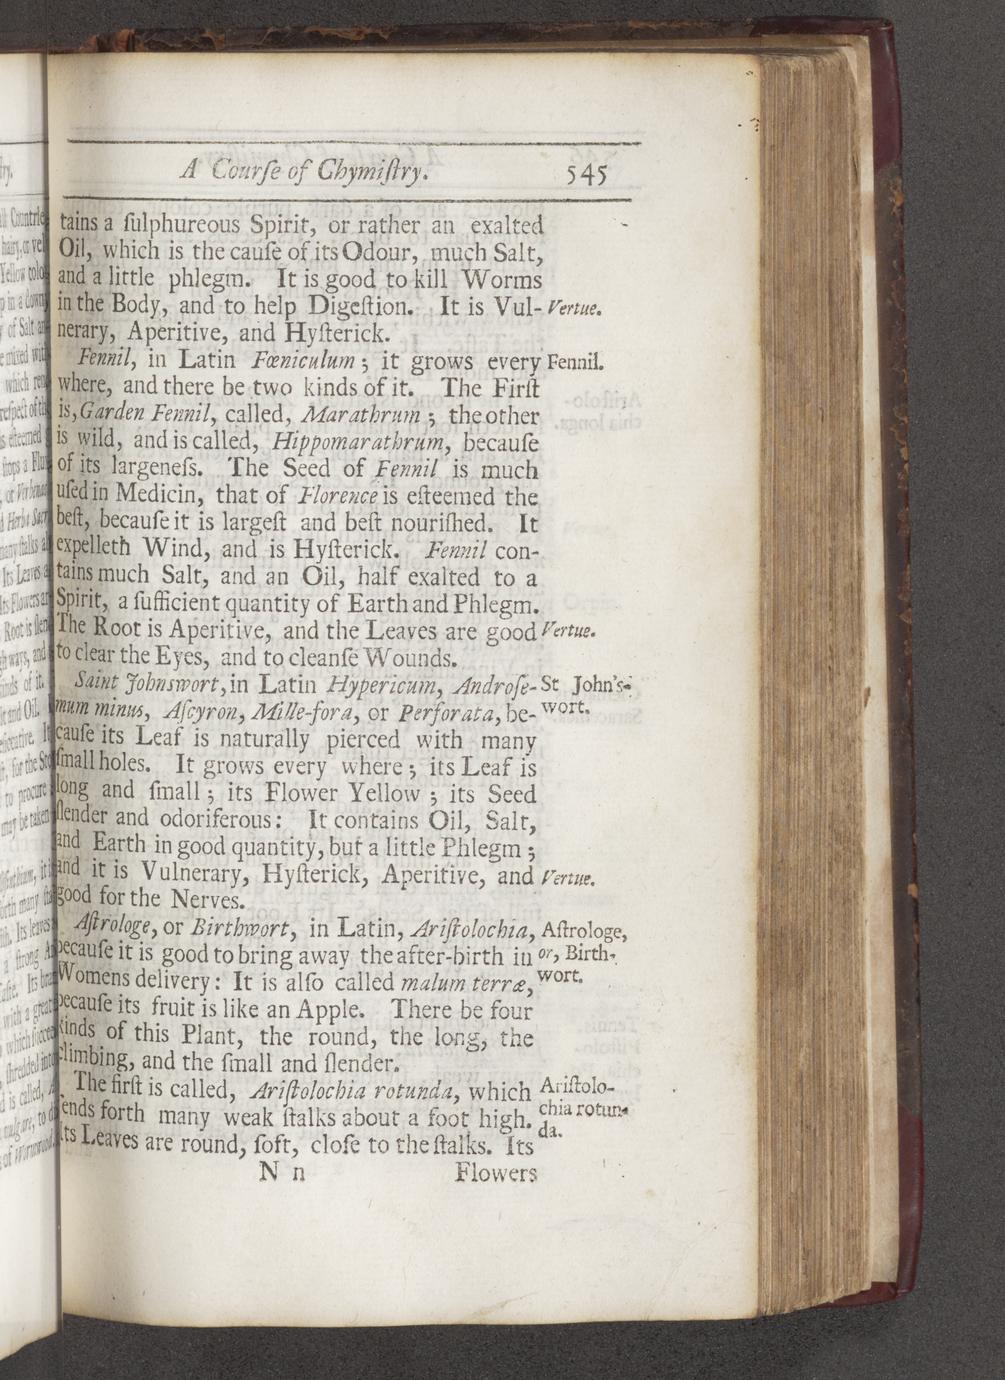 A Courſe of Chymiſtry. 545
tains a ſulphureous Spirit, or rather an exalted
Oil, which is the cauſe of its Odour, much Salt,
and a little phlegm. It is good to kill Worms
in the Body, and to help Digeſtion. It is Vul- Vertue.
nerary, Aperitive, and Hyſterick.
Fennil, in Latin Fœniculum; it grows every Fennil.
where, and there be two kinds of it. The Firſt
is, Garden Fennil, called, Marathrum; the other
is wild, and is called, Hippomarathrum, becauſe
of its largeneſs. The Seed of Fennil is much
uſed in Medicin, that of Florence is eſteemed the
beſt, becauſe it is largeſt and beſt nouriſhed. It
expelleth Wind, and is Hyſterick. Fennil con-
tains much Salt, and an Oil, half exalted to a
Spirit, a ſufficient quantity of Earth and Phlegm.
The Root is Aperitive, and the Leaves are good Vertue.
to clear the Eyes, and to cleanſe Wounds.
Saint Johnswort, in Latin Hypericum, Androſe- St John's-
mum minus, Aſcyron, Mille-fora, or Perforata, be- wort.
cauſe its Leaf is naturally pierced with many
ſmall holes. It grows every where; its Leaf is
long and ſmall; its Flower Yellow; its Seed
ſlender and odoriferous: It contains Oil, Salt,
and Earth in good quantity, but a little Phlegm;
and it is Vulnerary, Hyſterick, Aperitive, and Vertue.
good for the Nerves.
Aſtrologe, or Birthwort, in Latin, Ariſtolochia, Aſtrologe,
becauſe it is good to bring away the after-birth in or, Birth-
Womens delivery: It is alſo called malum terræ, wort.
becauſe its fruit is like an Apple. There be four
kinds of this Plant, the round, the long, the
climbing, and the ſmall and ſlender.
The firſt is called, Ariſtolochia rotunda, which Ariſtolo-
ends forth many weak ſtalks about a foot high. chia rotun-
its Leaves are round, ſoft, cloſe to the ſtalks. Its da.
N n Flowers